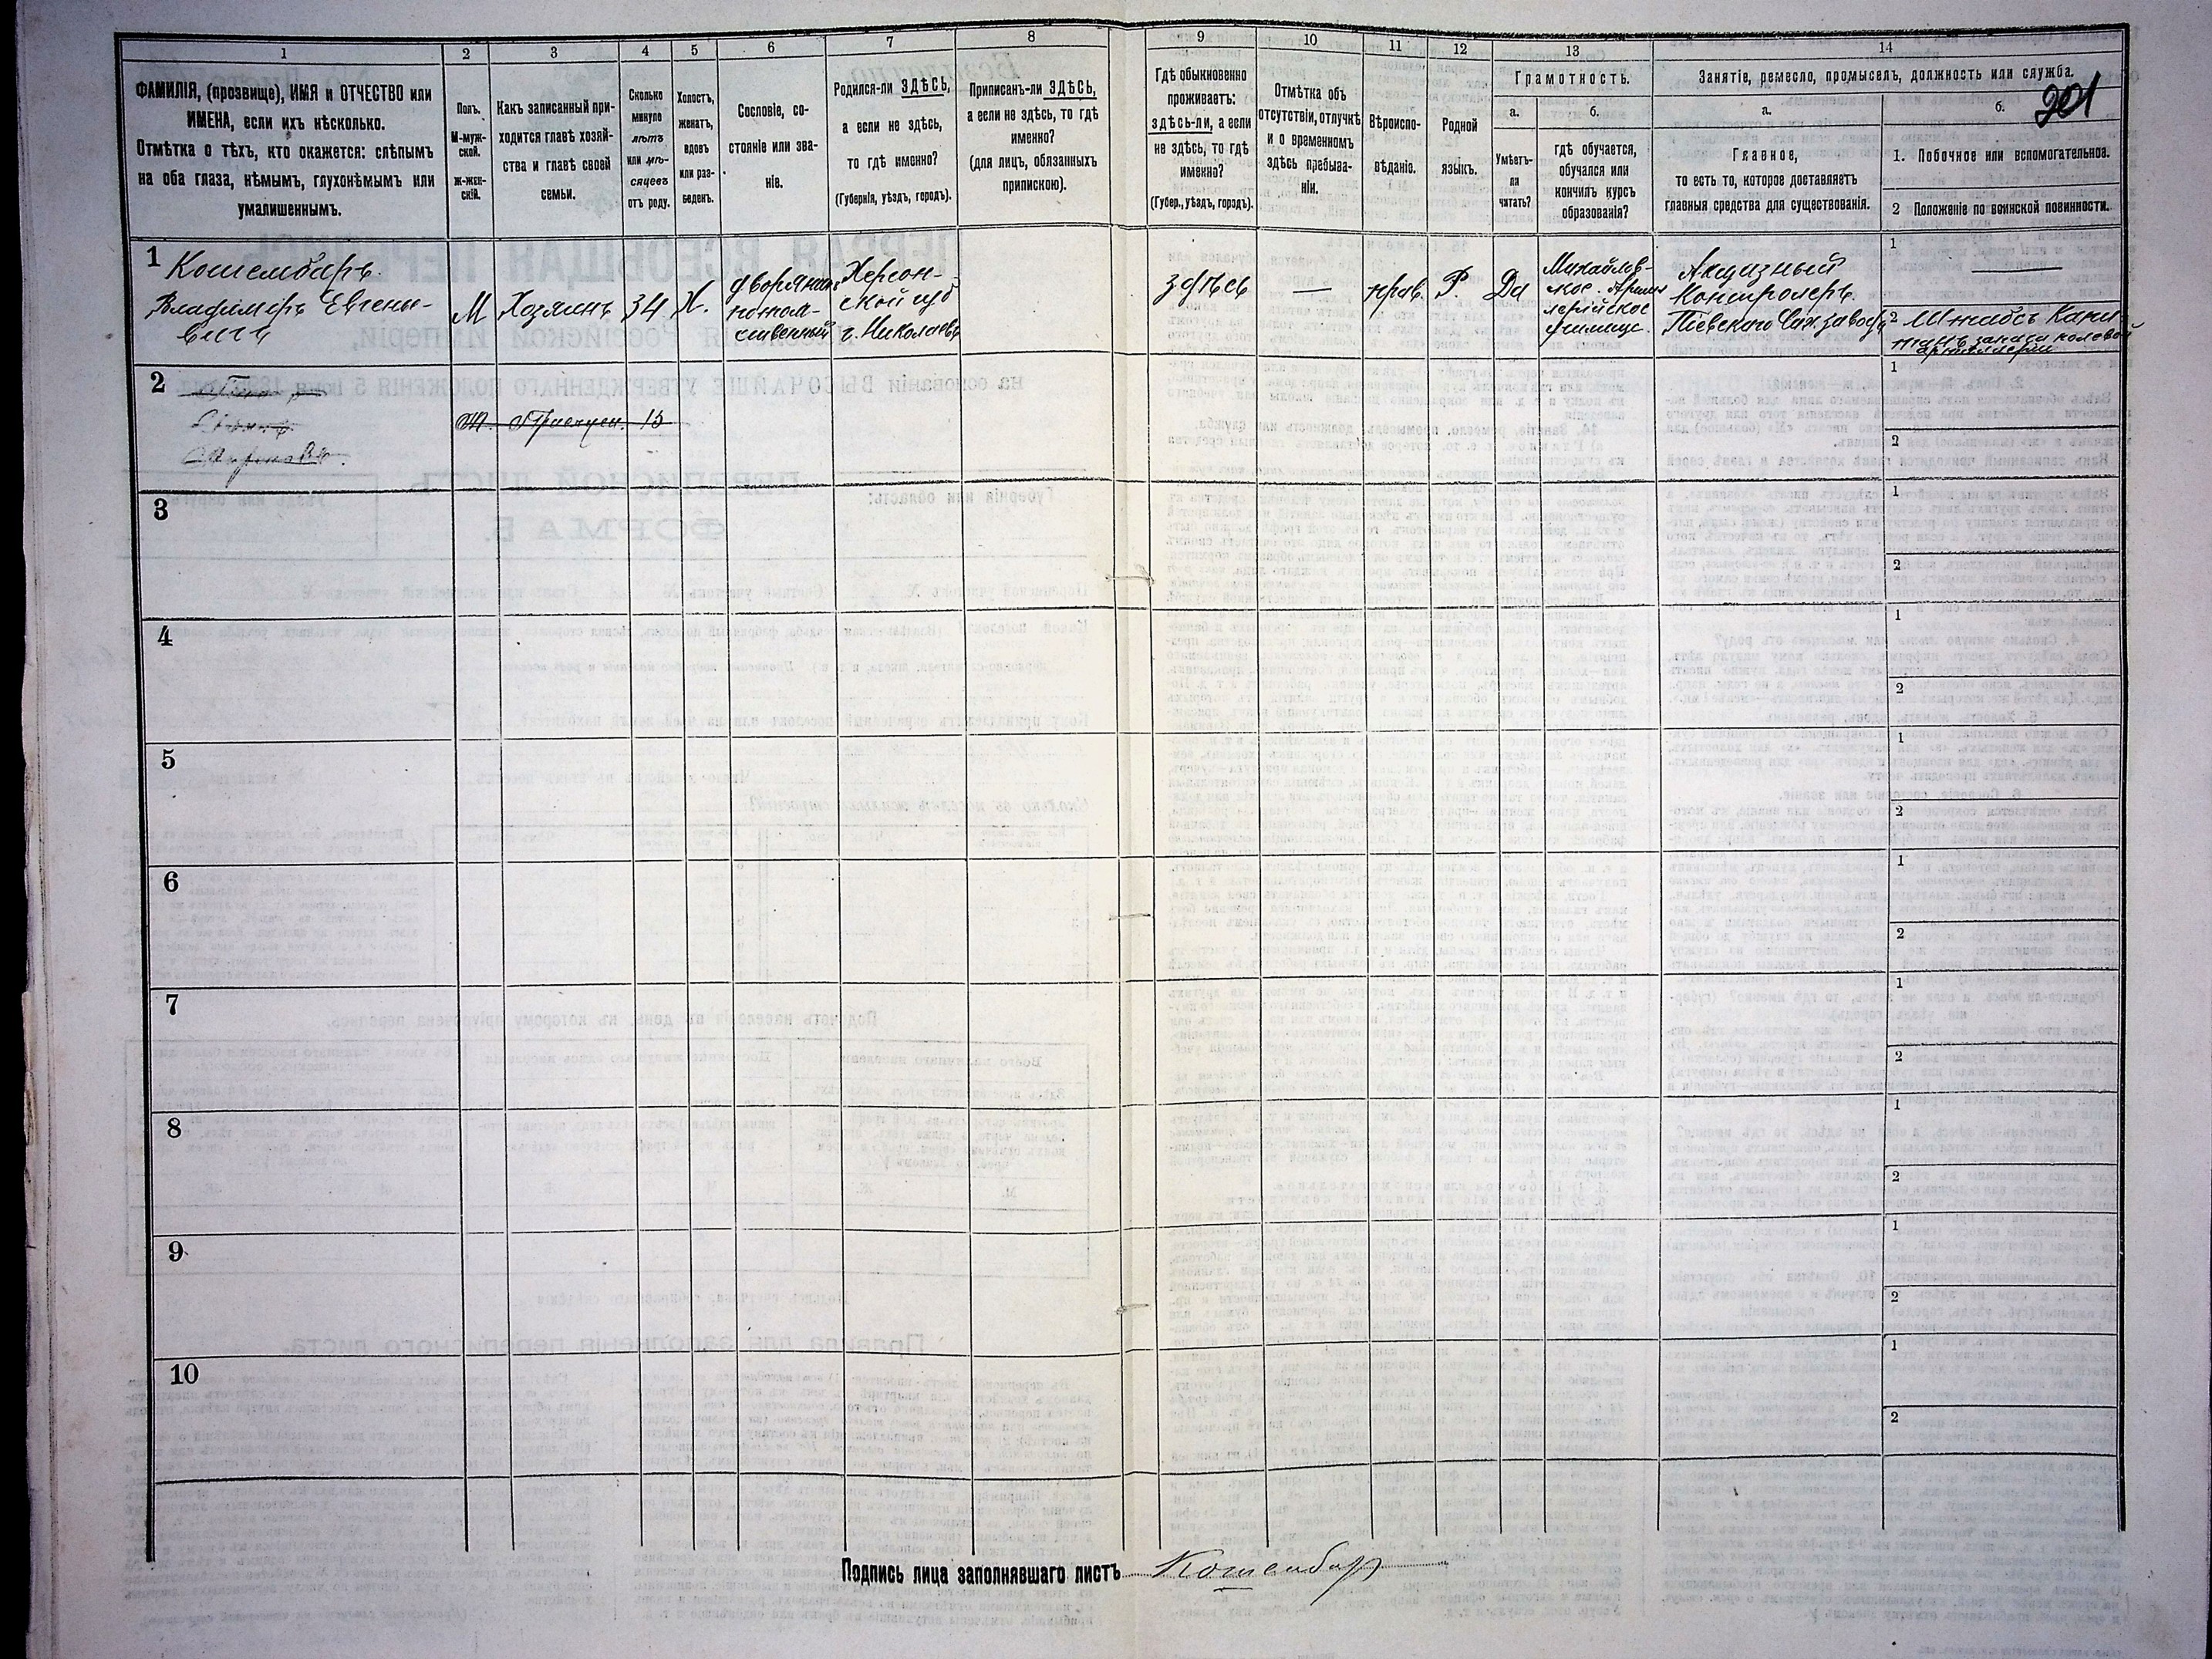 1
2
3
4
5
6
7
8
9
10
11
12
13
14
ФАМИЛІЯ, (прозвище), ИМЯ и ОТЧЕСТВО или
ИМЕНА, если ихъ нѣсколько.
Отмѣтка о тѣхъ, кто окажется: слѣпымъ
на оба глаза, нѣмымъ, глухонѣмымъ или
умалишеннымъ.
Полъ.
М-муж-
ской.
ж-жен-
скій.
Какъ записанный при-
ходится главѣ хозяй-
ства и главѣ своей
семьи.
Сколько
минуло
лѣтъ
или мѣ-
сяцевъ
отъ роду.
Холостъ,
женатъ,
вдовъ
или раз-
веденъ.
Сословіе, со-
стояніе или зва-
ніе.
Родился-ли ЗДѢСЬ,
а если не здѣсь,
то гдѣ именно?
(Губернія, уѣздъ, городъ).
Приписанъ-ли ЗДѢСЬ,
а если не здѣсь, то гдѣ
именно?
(для лицъ, обязанныхъ
припискою).
Гдѣ обыкновенно
проживаетъ:
здѣсь-ли, а если
не здѣсь, то гдѣ
именно?
(Губер., уѣздъ, городъ).
Отмѣтка объ
отсутствіи, отлучкѣ
и о временномъ
здѣсь пребыва-
ніи.
Вѣроиспо-
вѣданіе.
Родной
языкъ.
Грамотность.
а.
Умѣетъ-
ли
читать?
б.
гдѣ обучается,
обучался или
кончилъ курсъ
образованія?
Занятіе, ремесло, промыселъ, должность или служба.
201
а.
Главное,
то есть то, которое доставляетъ
главныя средства для существованія.
б.
1. Побочное или вспомогательное.
2 Положеніе по воинской повинности.
1
Кошембаръ.
Владиміръ Евгенье-
вичъ
М
Хозяинъ
34
Х.
дворянинъ
потом-
ственный
Херсон-
ской губ
г. Николаевъ
здѣсь
—
прав.
Р.
Да
Михайлов-
ское. Артил
лерійское
училище.
Акцизный
Контролеръ
1
—
2 Штабсъ Капи-
танъ запаса полевой
артиллеріи
2
Ж.
13
1
2
3
1
2
4
1
2
5
1
2
6
1
2
7
1
2
8
1
2
9
1
2
10
1
2
Подпись лица заполнявшаго листъ Кошембар